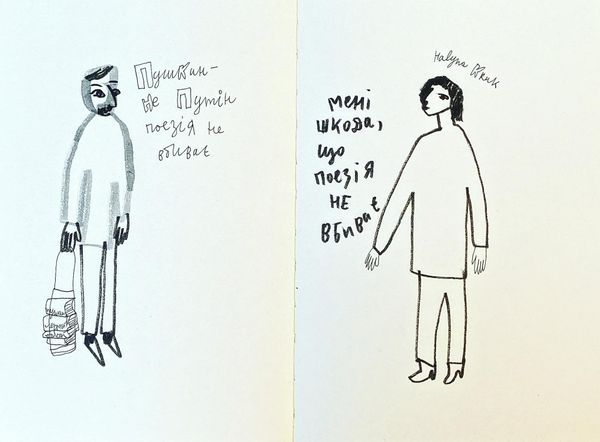 Пушкин–
не Путін
поезія не
вбиває
Halyna Kruk
мені
шкода,
що
поезія
не
вбиває